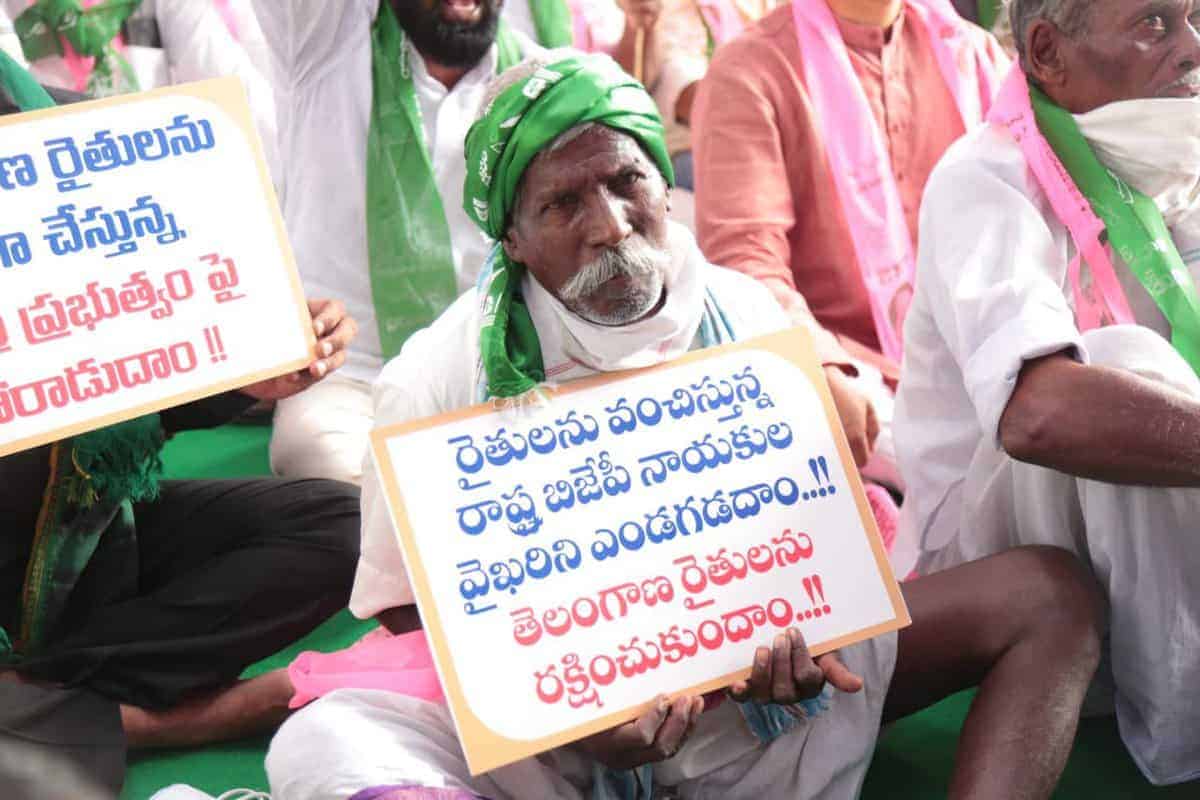 రైతులను
చేస్తున్న
ప్రభుత్వం పై
పోరాడుదాం !!
రైతులను వంచిస్తున్న
రాష్ట్ర బిజేపీ నాయకుల
వైఖరిని ఎండగడదాం...!!
తెలంగాణ రైతులను
రక్షించుకుందాం...!!